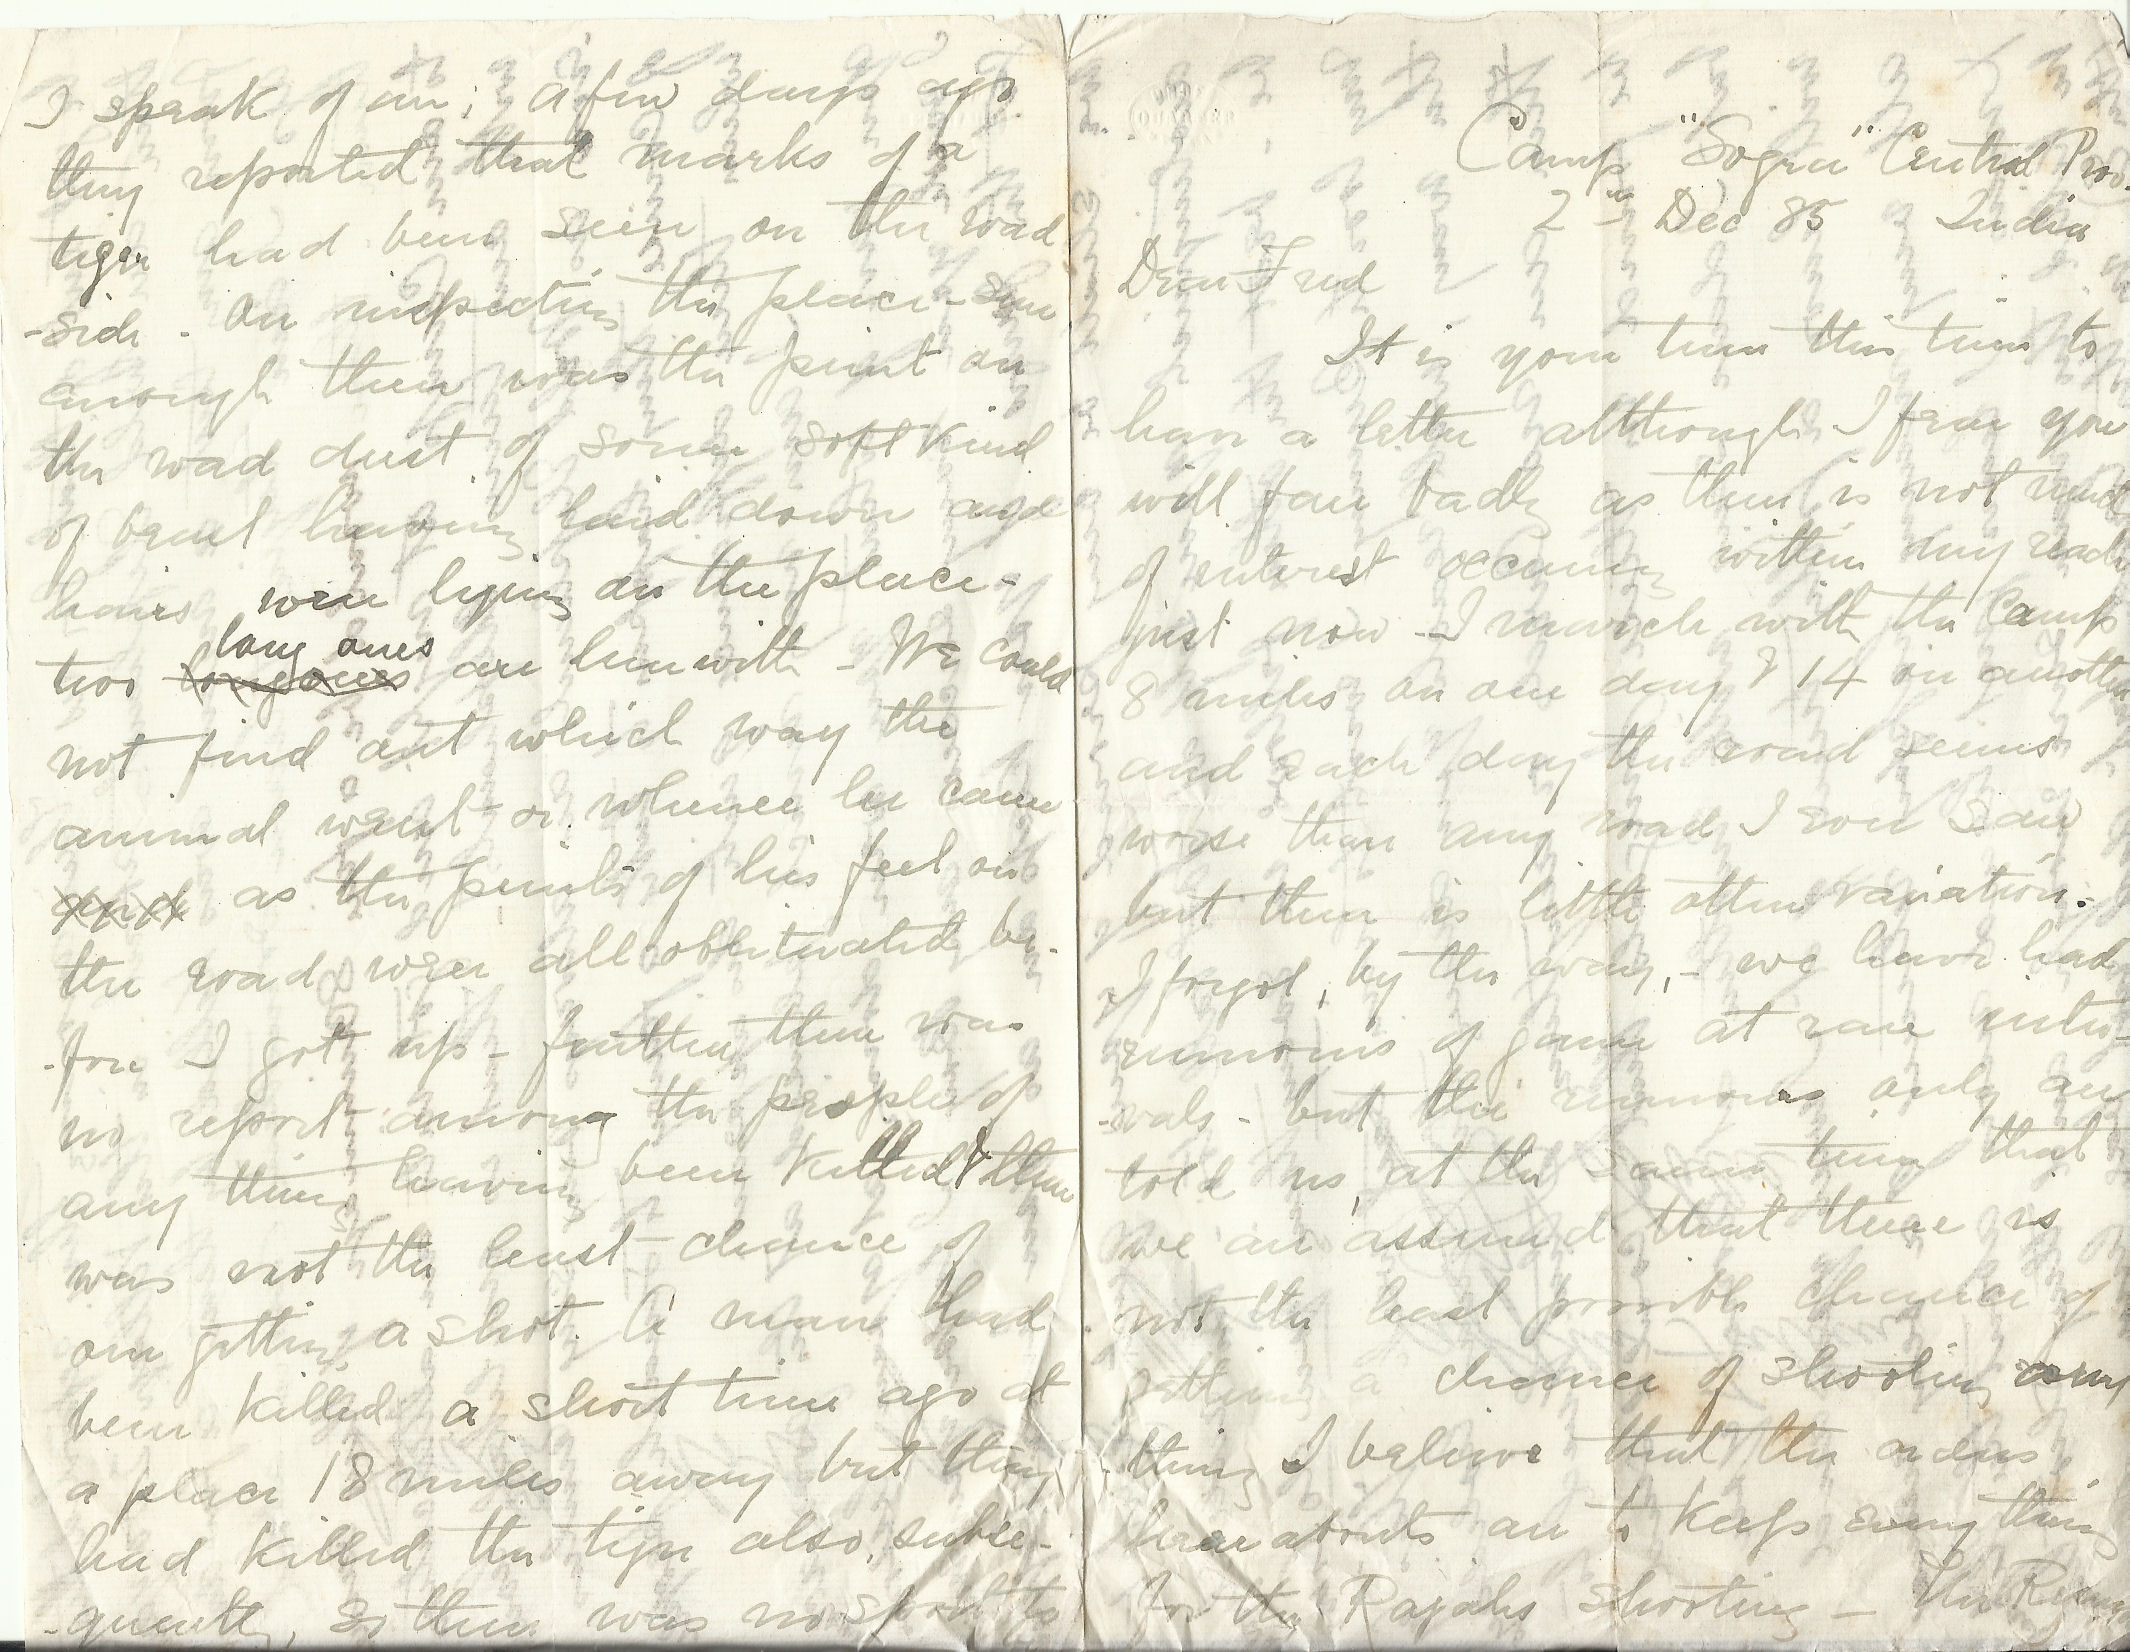 Camp "Sogra" Central Prov.
2nd Dec 85 India
Dear Fred
It is your turn this time to
have a letter although I fear you
will fare badly as there is not much
of interest occurring within my reach
just now - I march with the Camp
8 miles on one day & 14 on another
and each day the road seems
worse than any road I ever saw
but there is little other variation.
I forgot, by the way, - we have had
rumours of game at rare inter-
-vals - but the rumours only are
told us, at the same time that
we are assured that there is
not the least possible chance of
getting a chance of shooting any
thing I believe that the orders
hereabouts are to keep every thing
for the Rajahs shooting - The
I speak of are; a few days ago
they reported that marks of a
tiger had been seen on the road
-side - On inspecting the place - sure
enough there was the print on
the road dust of some soft kind
of beast having laid down and
hairs were lying on the place -
two long ones are herewith - We could
not find out which way the
animal went or whence he came
as the prints of his feet on
the road were all obliterated be-
-fore I got up - further there was
no report among the people of
any thing having been killed & there
was not the least chance of
our getting a shot. A man had
been killed a short time ago at
a place 18 miles away but they
had killed the tiger also, subse-
-quently, so there was no sport to